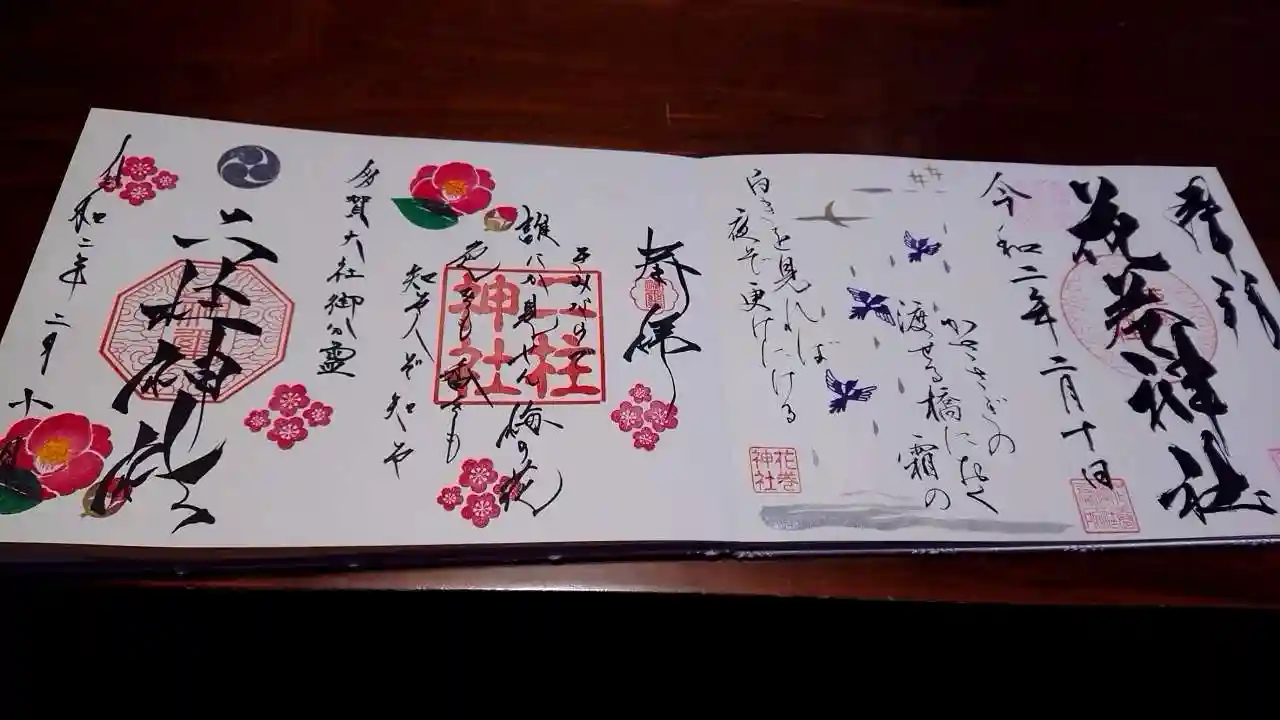 奉拝
花巻神社
令和二年二月十日
かさゝぎの
渡せる橋におく
霜の
白きを見れば
夜ぞ更けにける
花巻
神社
奉拝
きみならで
誰にか見せん梅の花
色をも香をも
知る人ぞ知る
二柱
神社
多賀大社御分霊
二柱神社
令和二年二月十